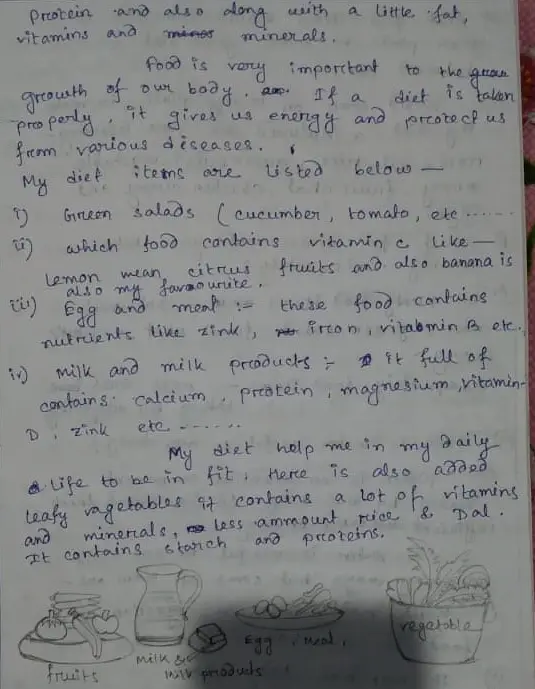 Protein and also along with a little fat,
vitamins and minerals.
Food is very important to the
growth of our body. If a diet is taken
properly, it gives us energy and protect us
from various diseases.
My diet items are listed below —
i) Green salads ( cucumber, tomato, etc ......
ii) which food contains vitamin c like —
Lemon mean citrus fruits and also banana is
also my favourite.
iii) Egg and meat :- these food contains
nutrients like zink, iron, vitabmin B etc.
iv) Milk and milk products :- it full of
contains calcium, protein, magnesium, vitamin-
D, zink etc .......
My diet help me in my daily
life to be in fit. Here is also added
leafy vagetables it contains a lot of vitamins
and minerals, less ammount, rice & Dal.
It contains starch and proteins.
fruits
milk &
milk products
Egg, meat,
vegetable